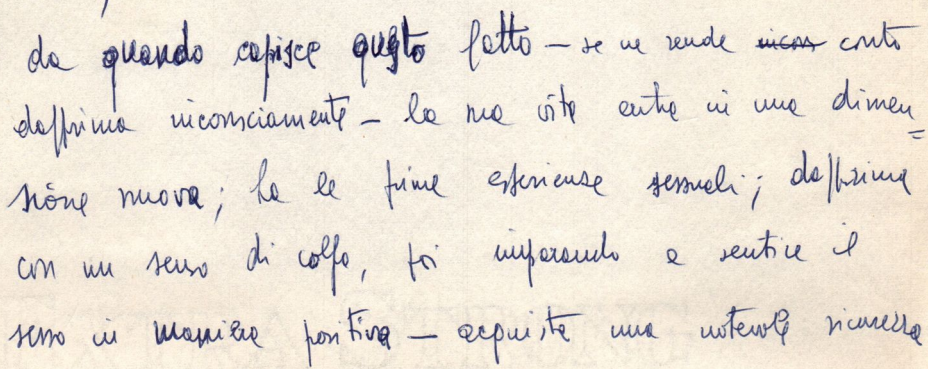 da quando capisce questo fatto – se ne rende incon conto
dapprima inconsciamente – la sua vita entra in una dimen=
sione nuova; ha le prime esperienze sessuali; dapprima
con un senso di colpa, poi imparando a sentire il
sesso in maniera positiva – acquista una notevole sicurezza